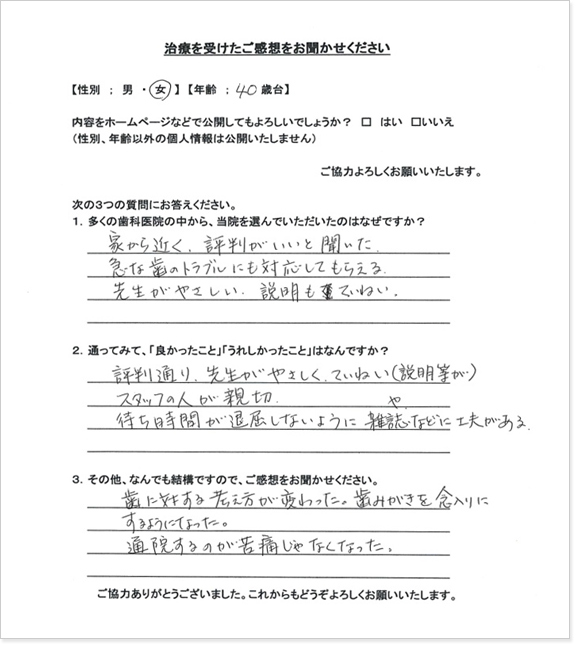 治療を受けたご感想をお聞かせください
【性別 : 男 ・ 女】【年齢 : 40 歳台】
内容をホームページなどで公開してもよろしいでしょうか? □ はい □いいえ
(性別、年齢以外の個人情報は公開いたしません)
ご協力よろしくお願いいたします。
次の3つの質問にお答えください。
1.多くの歯科医院の中から、当院を選んでいただいたのはなぜですか?
家から近く、評判がいいと聞いた
急な歯のトラブルにも対応してもらえる
先生がやさしい、説明もていねい。
2.通ってみて、「良かったこと」「うれしかったこと」はなんですか?
評判通り、先生がやさしく、ていねい(説明等が)
スタッフの人が親切、
や
待ち時間が退屈しないように 雑誌などに工夫がある。
3.その他、なんでも結構ですので、ご感想をお聞かせください。
歯に対する考え方が変わった。歯みがきを念入りに
するようになった。
通院するのが苦痛じゃなくなった。
ご協力ありがとうございました。これからもどうぞよろしくお願いいたします。